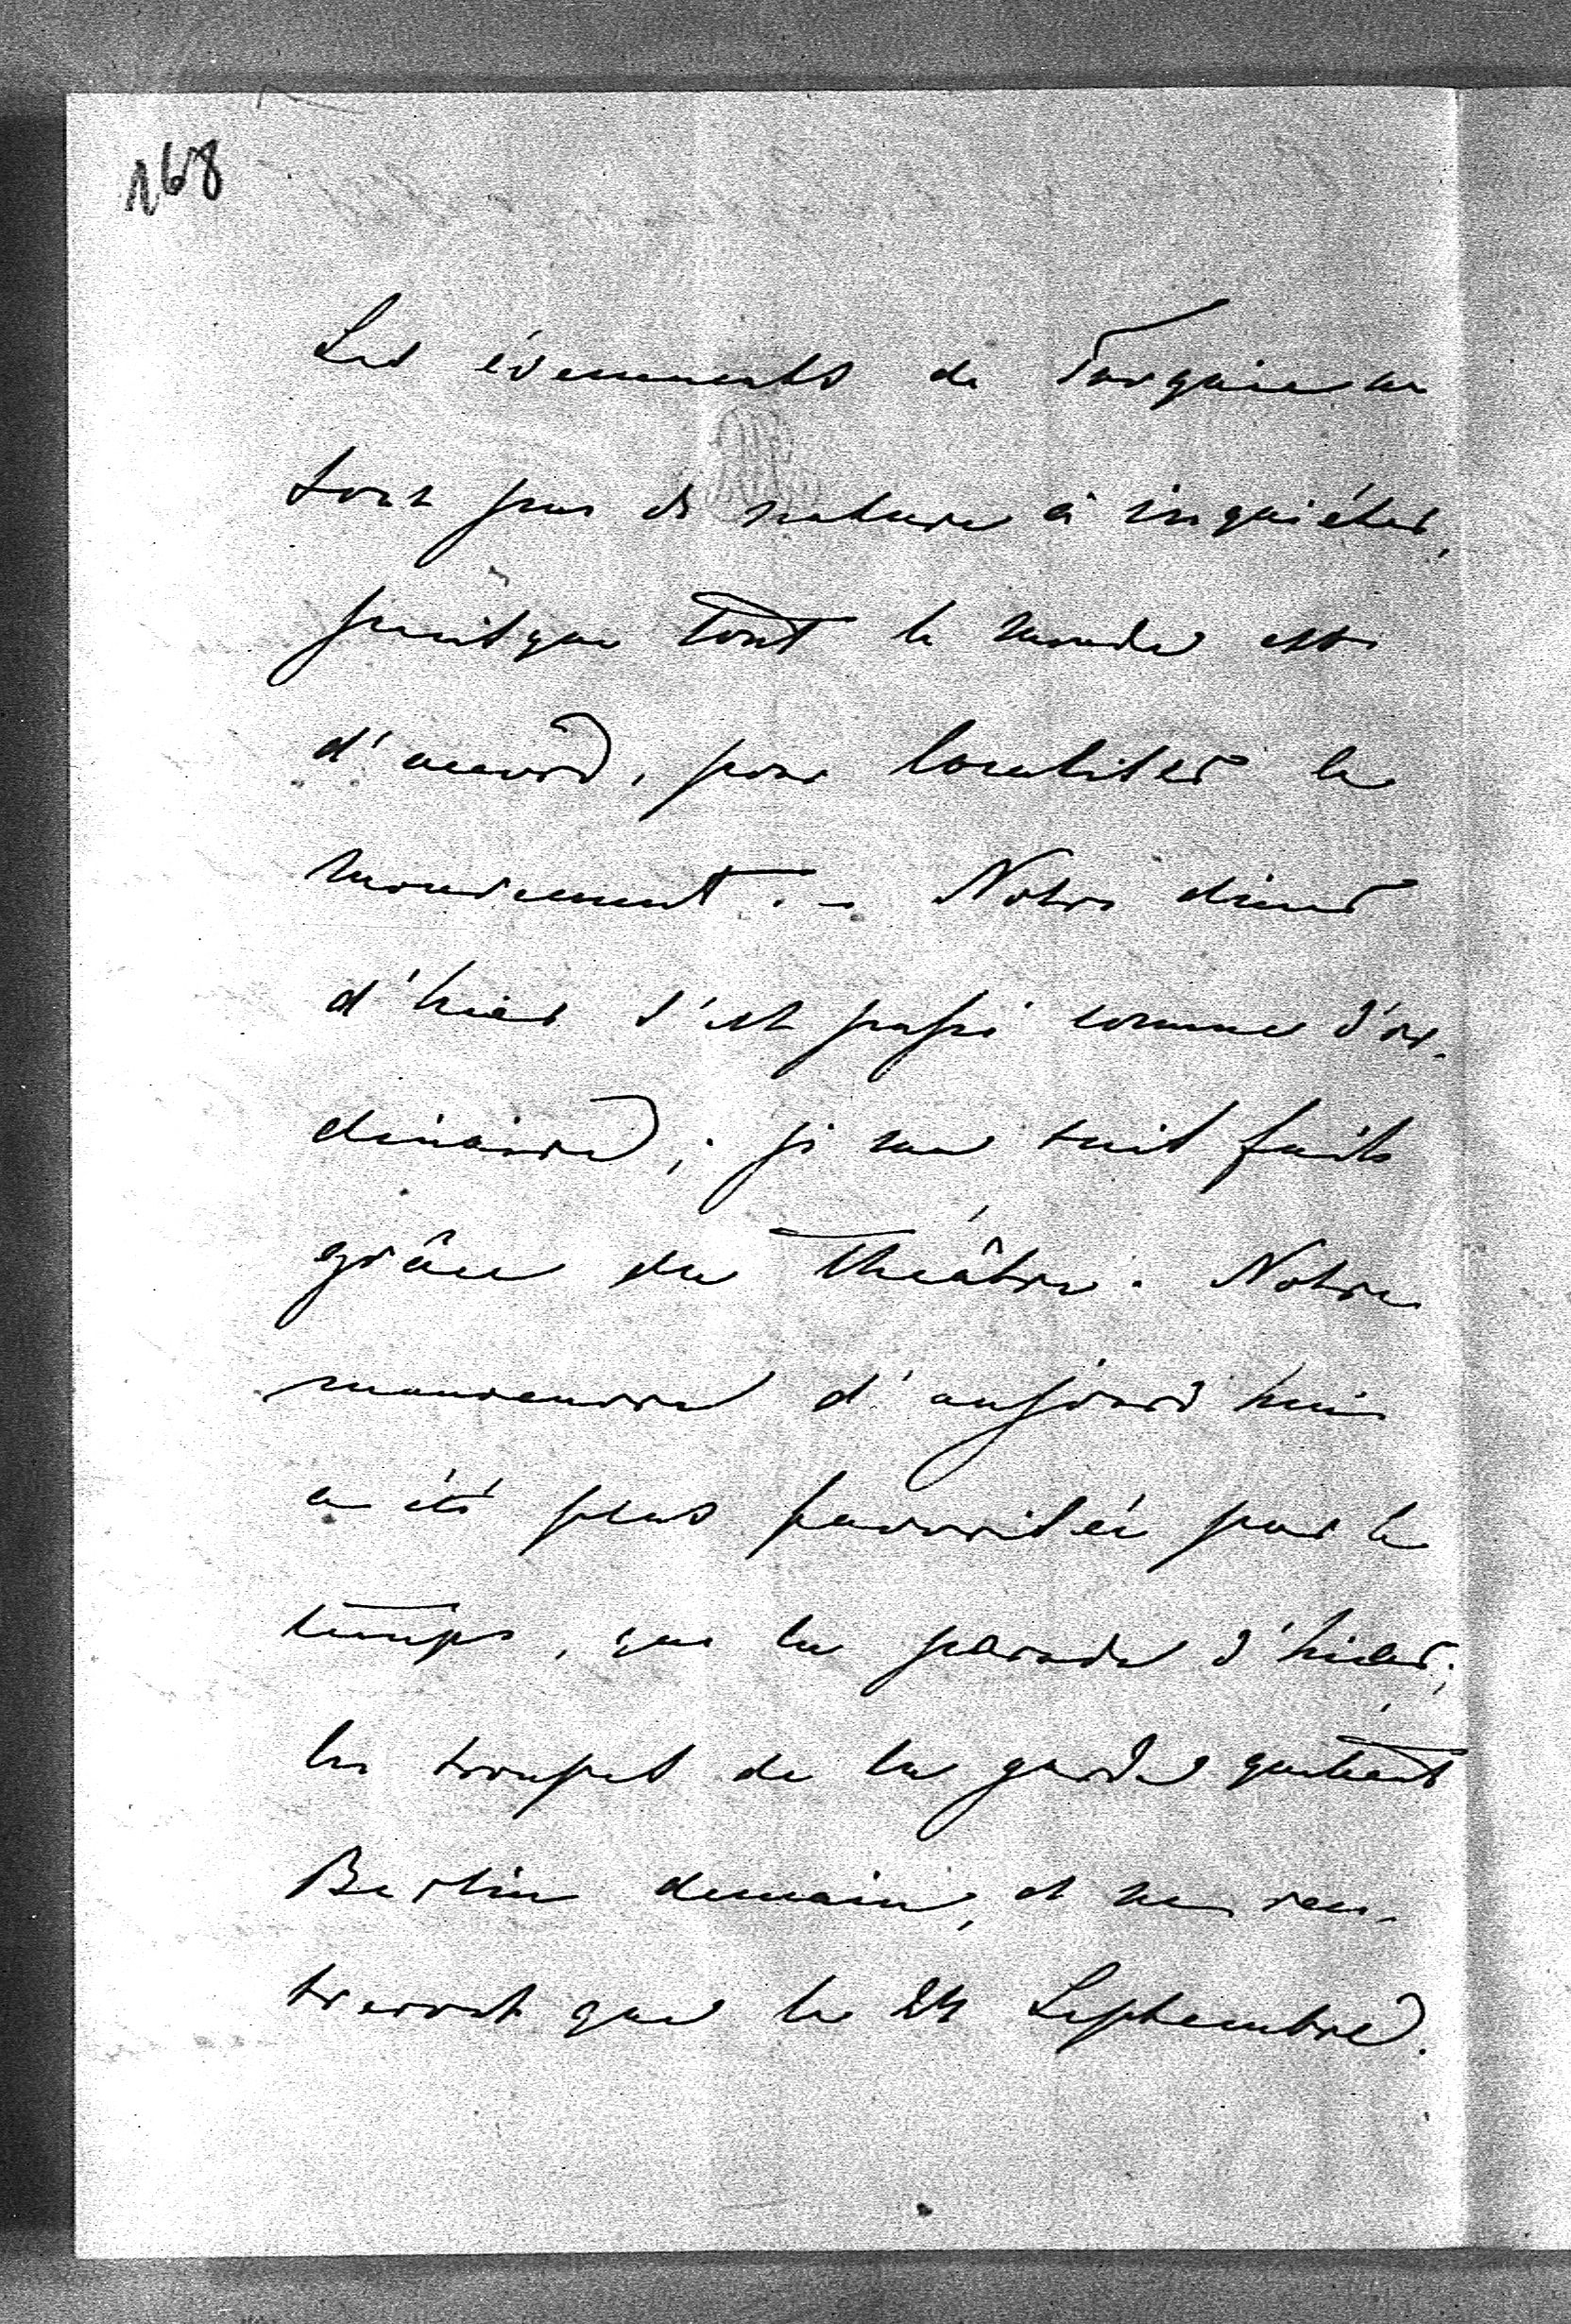 168
Les évenements de Turquie ne
sont pas de nature à inquiéter,
puisque tout le monde est
d'accord, pour localiser le
mouvement. – Notre diner
d'hier s'est passé comme d'or-
dinaire; je me suis fait
grâce du théâtre. Notre
manoeuvre d'aujourd'hui
a été plus favorisée par le
temps, que la parade d'hier;
les troupes de la garde quittent
Berlin demain, et ne ren-
treront que le 24 Septembre.